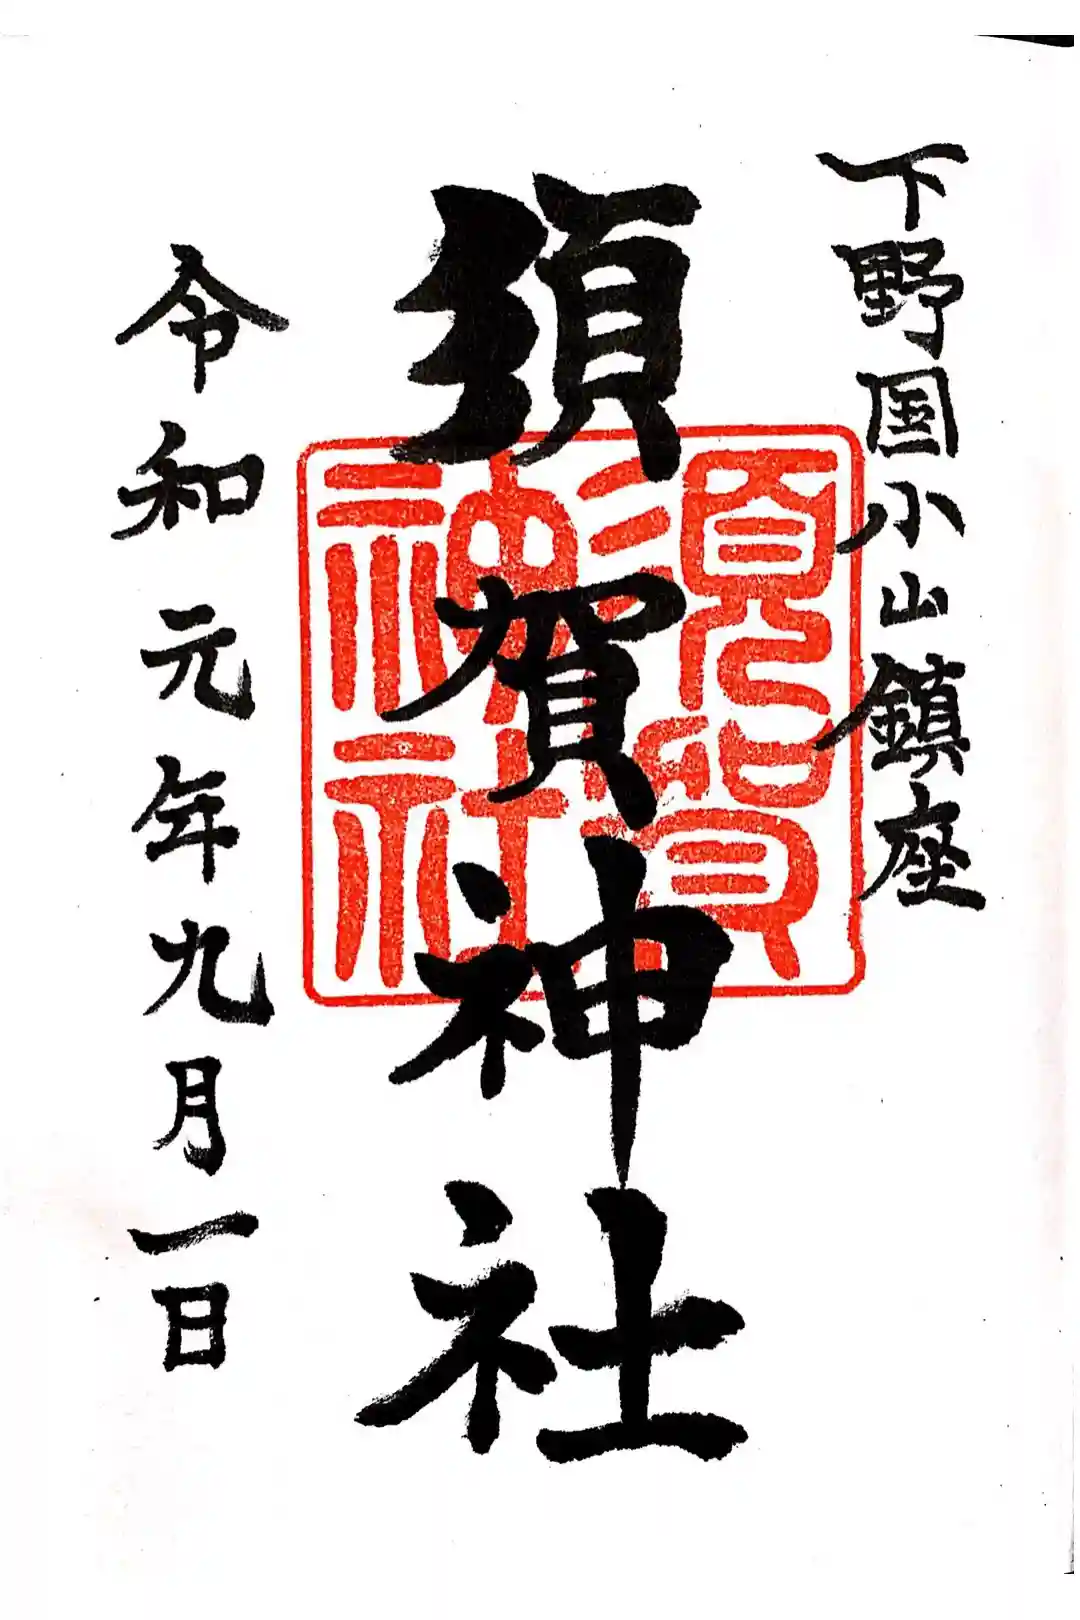 下野国小山鎮座
須賀神社
須賀
神社
令和元年九月一日